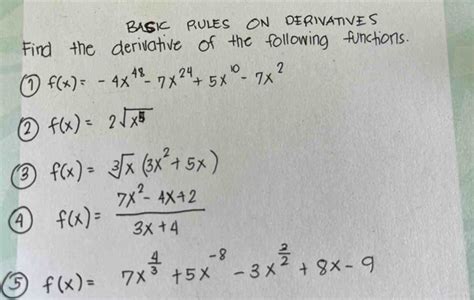 BASIC RULES ON DERIVATIVES
Find the derivative of the following functions.
① f(x) = - 4x⁴⁸ - 7x²⁴ + 5x¹⁰ - 7x²
② f(x) = 2√x⁵
③ f(x) = ∛x (3x² + 5x)
④ f(x) = (7x² - 4x + 2) / (3x + 4)
⑤ f(x) = 7x^(4/3) + 5x⁻⁸ - 3x^(3/2) + 8x - 9